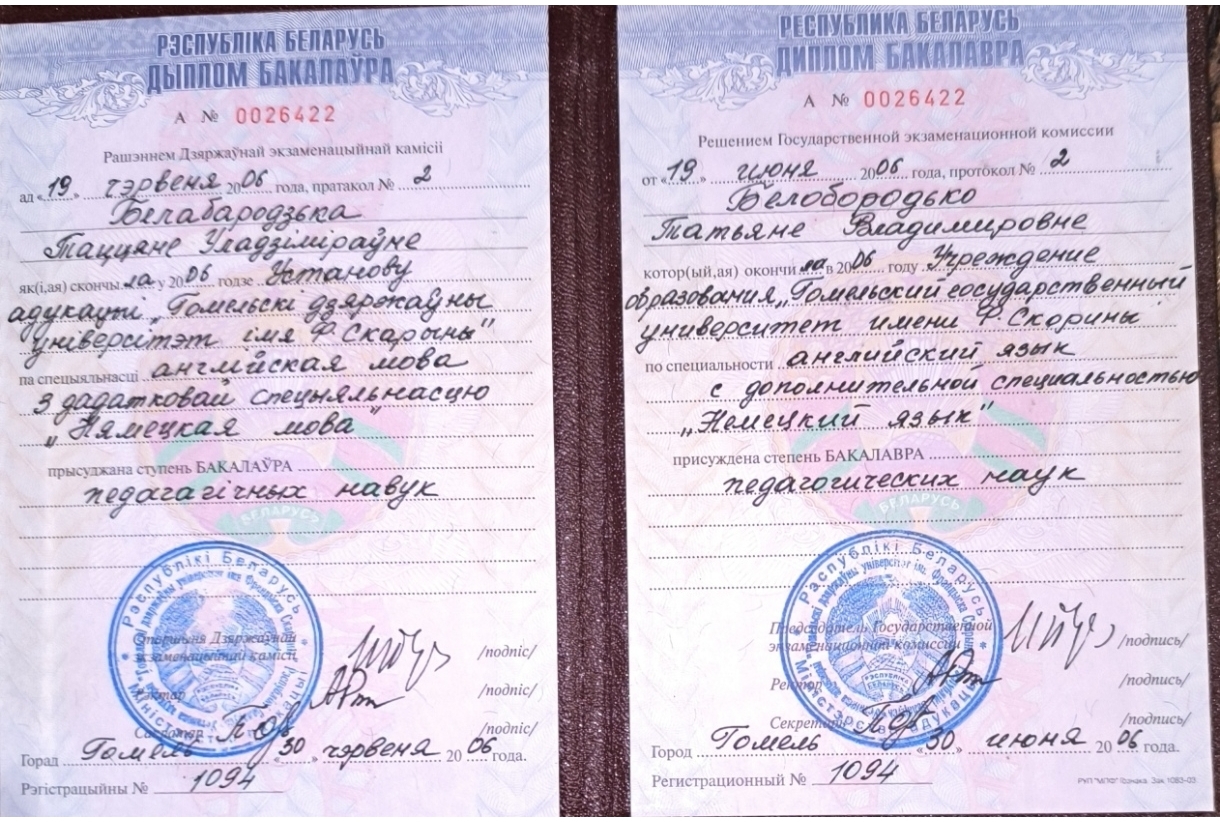 РЭСПУБЛІКА БЕЛАРУСЬ
ДЫПЛОМ БАКАЛАЎРА
А № 0026422
Рашэннем Дзяржаўнай экзаменацыйнай камісіі
ад «19» чэрвеня 2006 года, пратакол № 2
Белабародзька
Таццяне Уладзіміраўне
як(і,ая) скончыла у 2006 годзе Установу
адукацыі „Гомельскі дзяржаўны
універсітэт імя Ф Скарыны"
па спецыяльнасці англійская мова
з дадатковай спецыяльнасцю
„Нямецкая мова"
прысуджана ступень БАКАЛАЎРА
педагагічных навук
Рэспублікі Беларусь
Старшыня Дзяржаўнай
экзаменацыйнай камісіі /подпіс/
Рэктар /подпіс/
Сакратар /подпіс/
Горад Гомель «30» чэрвеня 2006 года.
Рэгістрацыйны № 1094
РЕСПУБЛИКА БЕЛАРУСЬ
ДИПЛОМ БАКАЛАВРА
А № 0026422
Решением Государственной экзаменационной комиссии
от «19» июня 2006 года, протокол № 2
Белобородько
Татьяне Владимировне
котор(ый,ая) окончила в 2006 году Учреждение
образования „Гомельский государственный
университет имени Ф Скорины
по специальности английский язык
с дополнительной специальностью
„Немецкий язык"
присуждена степень БАКАЛАВРА
педагогических наук
БЕЛАРУСЬ
Рэспублікі Беларусь
Председатель Государственной
экзаменационной комиссии /подпись/
Ректор /подпись/
Секретарь /подпись/
Город Гомель «30» июня 2006 года.
Регистрационный № 1094